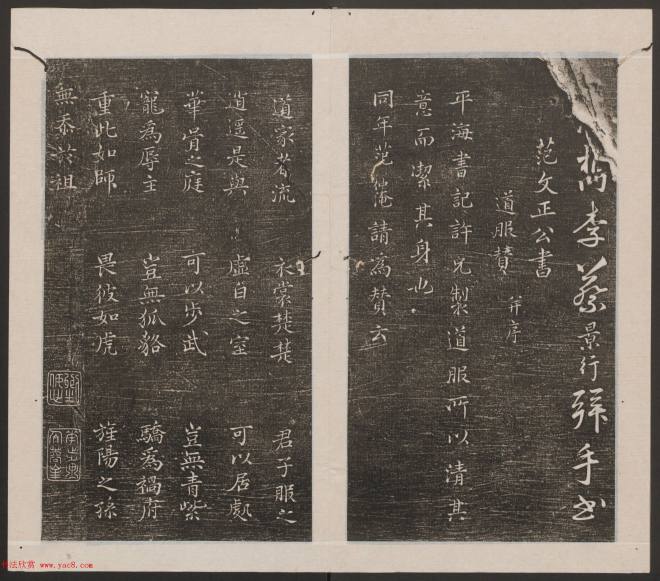 李蔡景行拜手書
范文正公書
道服賛 并序
平海書記許兄製道服所以清其
意而潔其身也
同年范仲淹請為賛云
道家者流 衣裳楚楚 君子服之
逍遥是與 虛白之室 可以居處
華胥之庭 可以步武 豈無青紫
寵為辱主 豈無狐貉 驕為禍府
重此如師 畏彼如虎 旌陽之孫
無忝於祖
书法欣赏 www.yac8.com